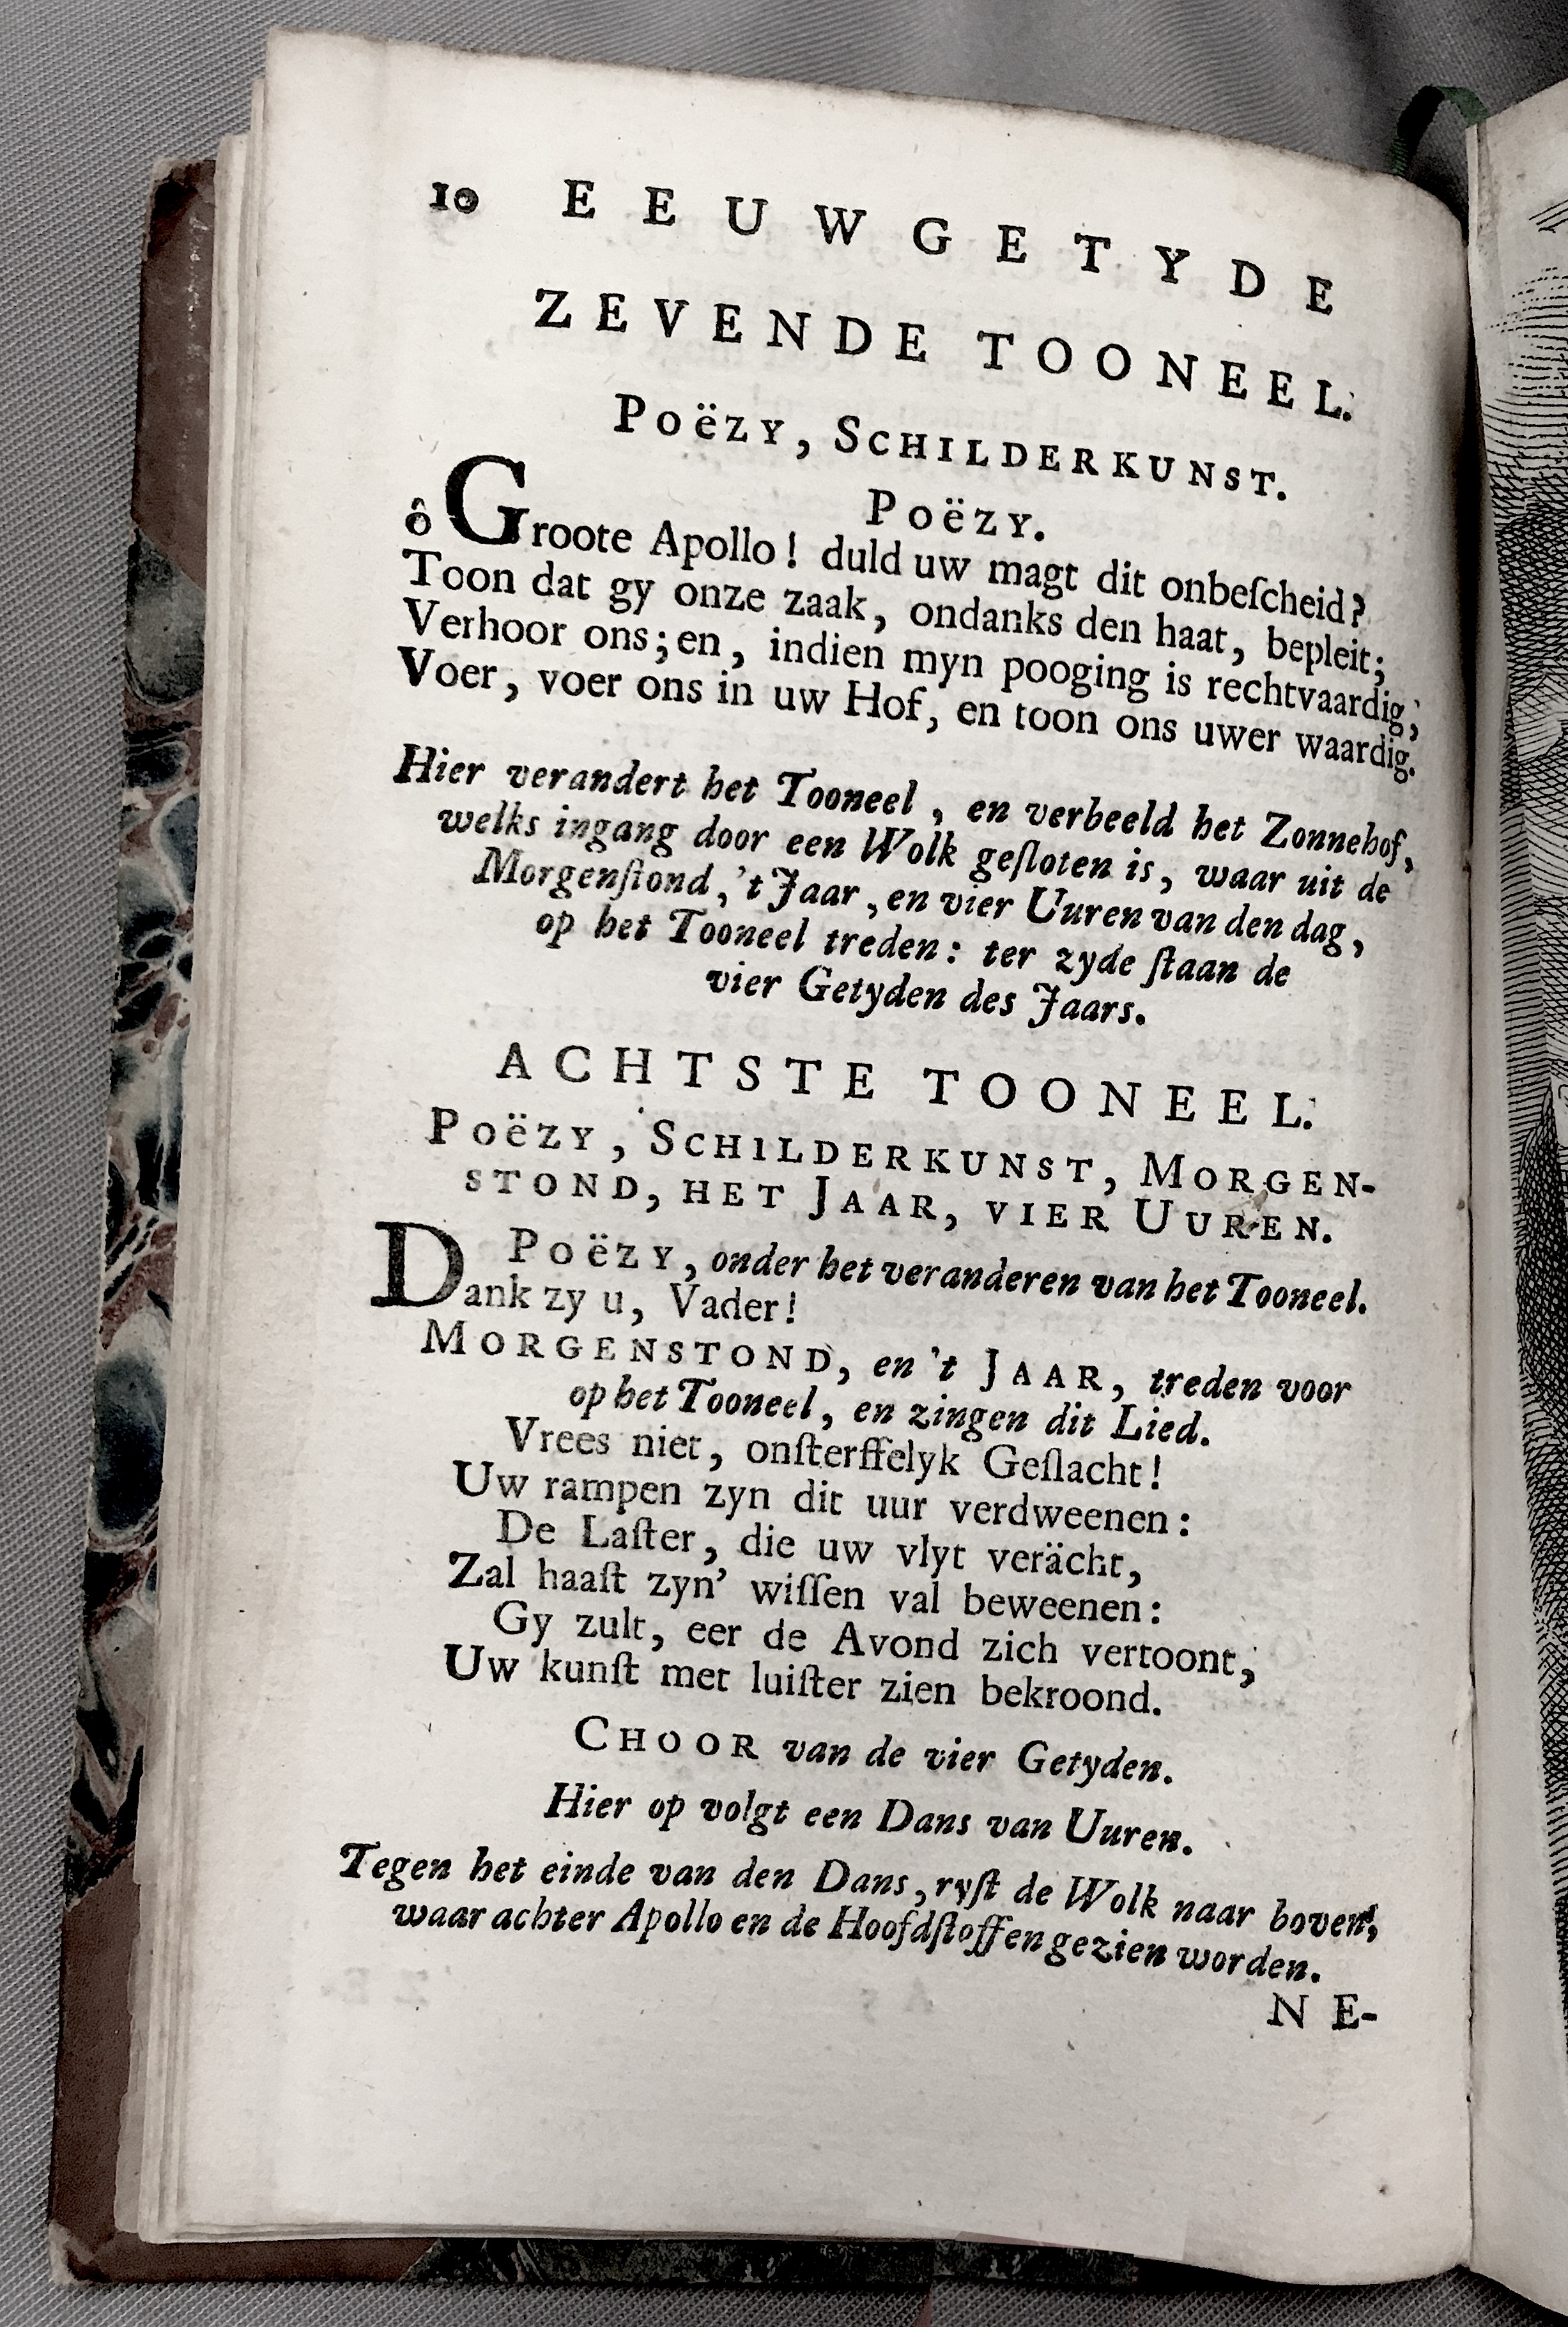 10 EEUWGETYDE
ZEVENDE TOONEEL.
Poëzy, Schilderkunst.
Poëzy.
ô Groote Apollo! duld uw magt dit onbeſcheid?
Toon dat gy onze zaak, ondanks den haat, bepleit;
Verhoor ons; en, indien myn pooging is rechtvaardig,
Voer, voer ons in uw Hof, en toon ons uwer waardig.
Hier verandert het Tooneel, en verbeeld het Zonnehof,
welks ingang door een Wolk geſloten is, waar uit de
Morgenſtond, 't Jaar, en vier Uuren van den dag,
op het Tooneel treden: ter zyde ſtaan de
vier Getyden des Jaars.
ACHTSTE TOONEEL.
Poëzy, Schilderkunst, Morgen-
stond, het Jaar, vier Uuren.
Poëzy, onder het veranderen van het Tooneel.
Dank zy u, Vader!
Morgenstond, en 't Jaar, treden voor
op het Tooneel, en zingen dit Lied.
Vrees niet, onſterffelyk Geſlacht!
Uw rampen zyn dit uur verdweenen:
De Laſter, die uw vlyt verächt,
Zal haaſt zyn' wiſſen val beweenen:
Gy zult, eer de Avond zich vertoont,
Uw kunſt met luiſter zien bekroond.
Choor van de vier Getyden.
Hier op volgt een Dans van Uuren.
Tegen het einde van den Dans, ryſt de Wolk naar boven,
waar achter Apollo en de Hoofdſtoffen gezien worden.
NE-